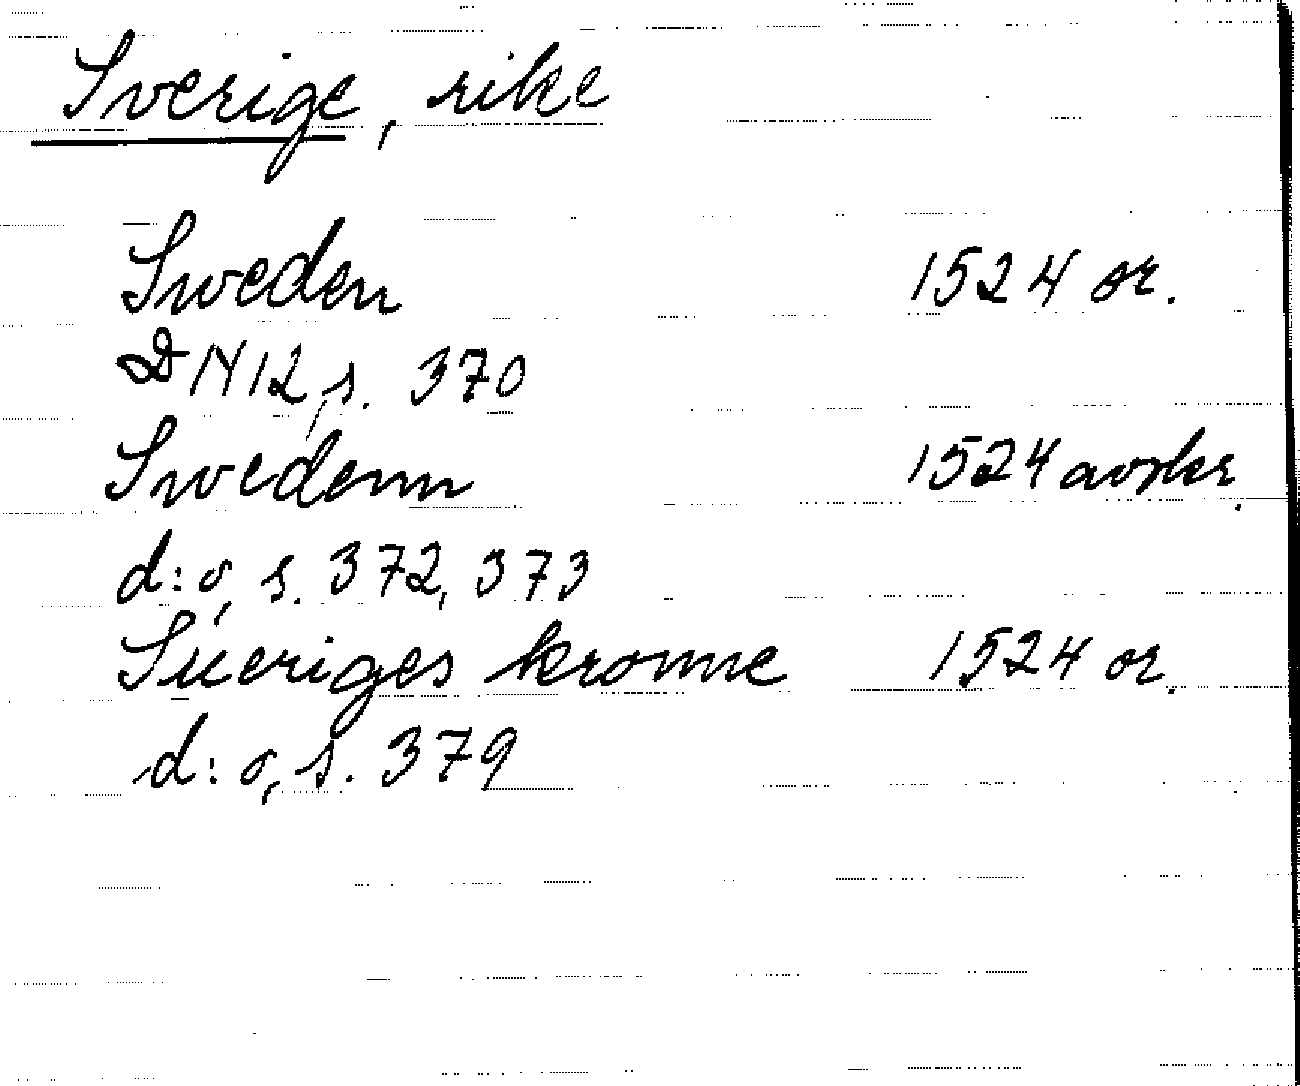 Sverige, rike
Sweden 1524 or.
DN 12, s. 370
Swedenn 1524 avskr.
d:o, s. 372, 373
Sueriges kronne 1524 or.
d:o, s. 379